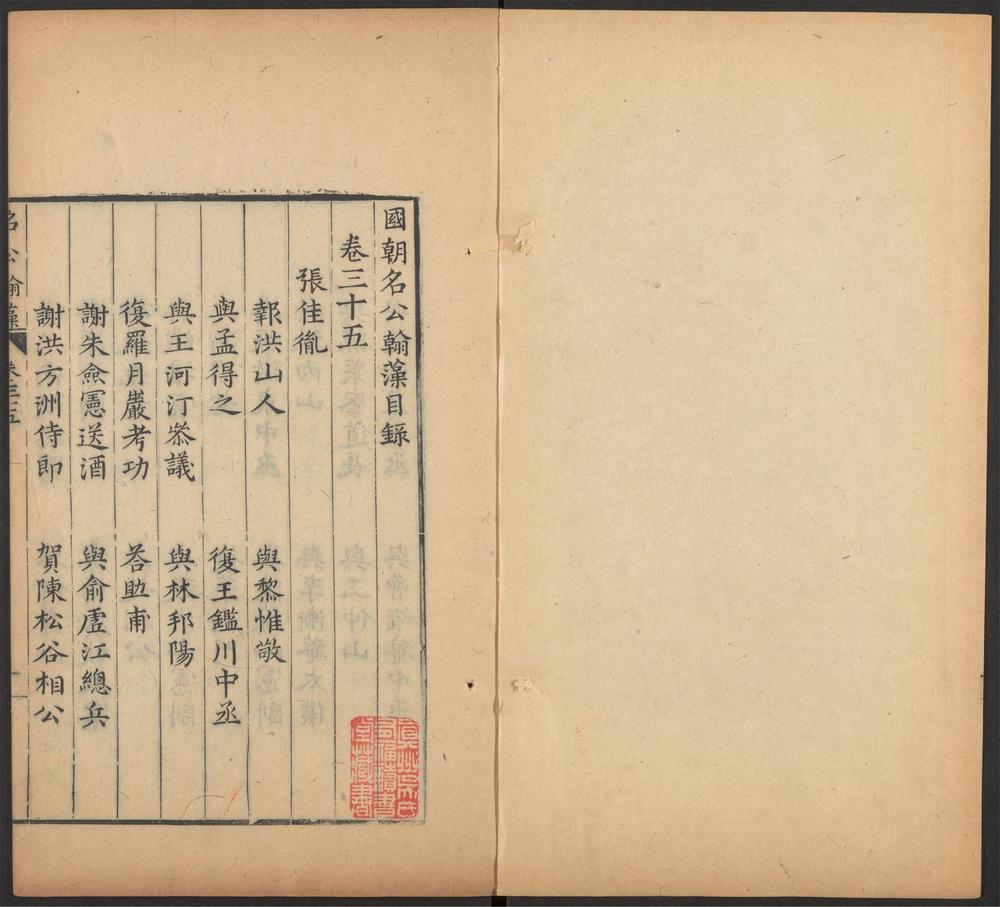 國朝名公翰藻目錄
卷三十五
張佳胤
報洪山人
與黎惟敬
與孟得之
復王鑑川中丞
與王河汀叅議
與林邦陽
復羅月巖考功
荅助甫
謝朱僉憲送酒
與俞虛江總兵
謝洪方洲侍郎
賀陳松谷相公
名公翰藻
卷三五
真州吳氏
有福讀書
堂藏書